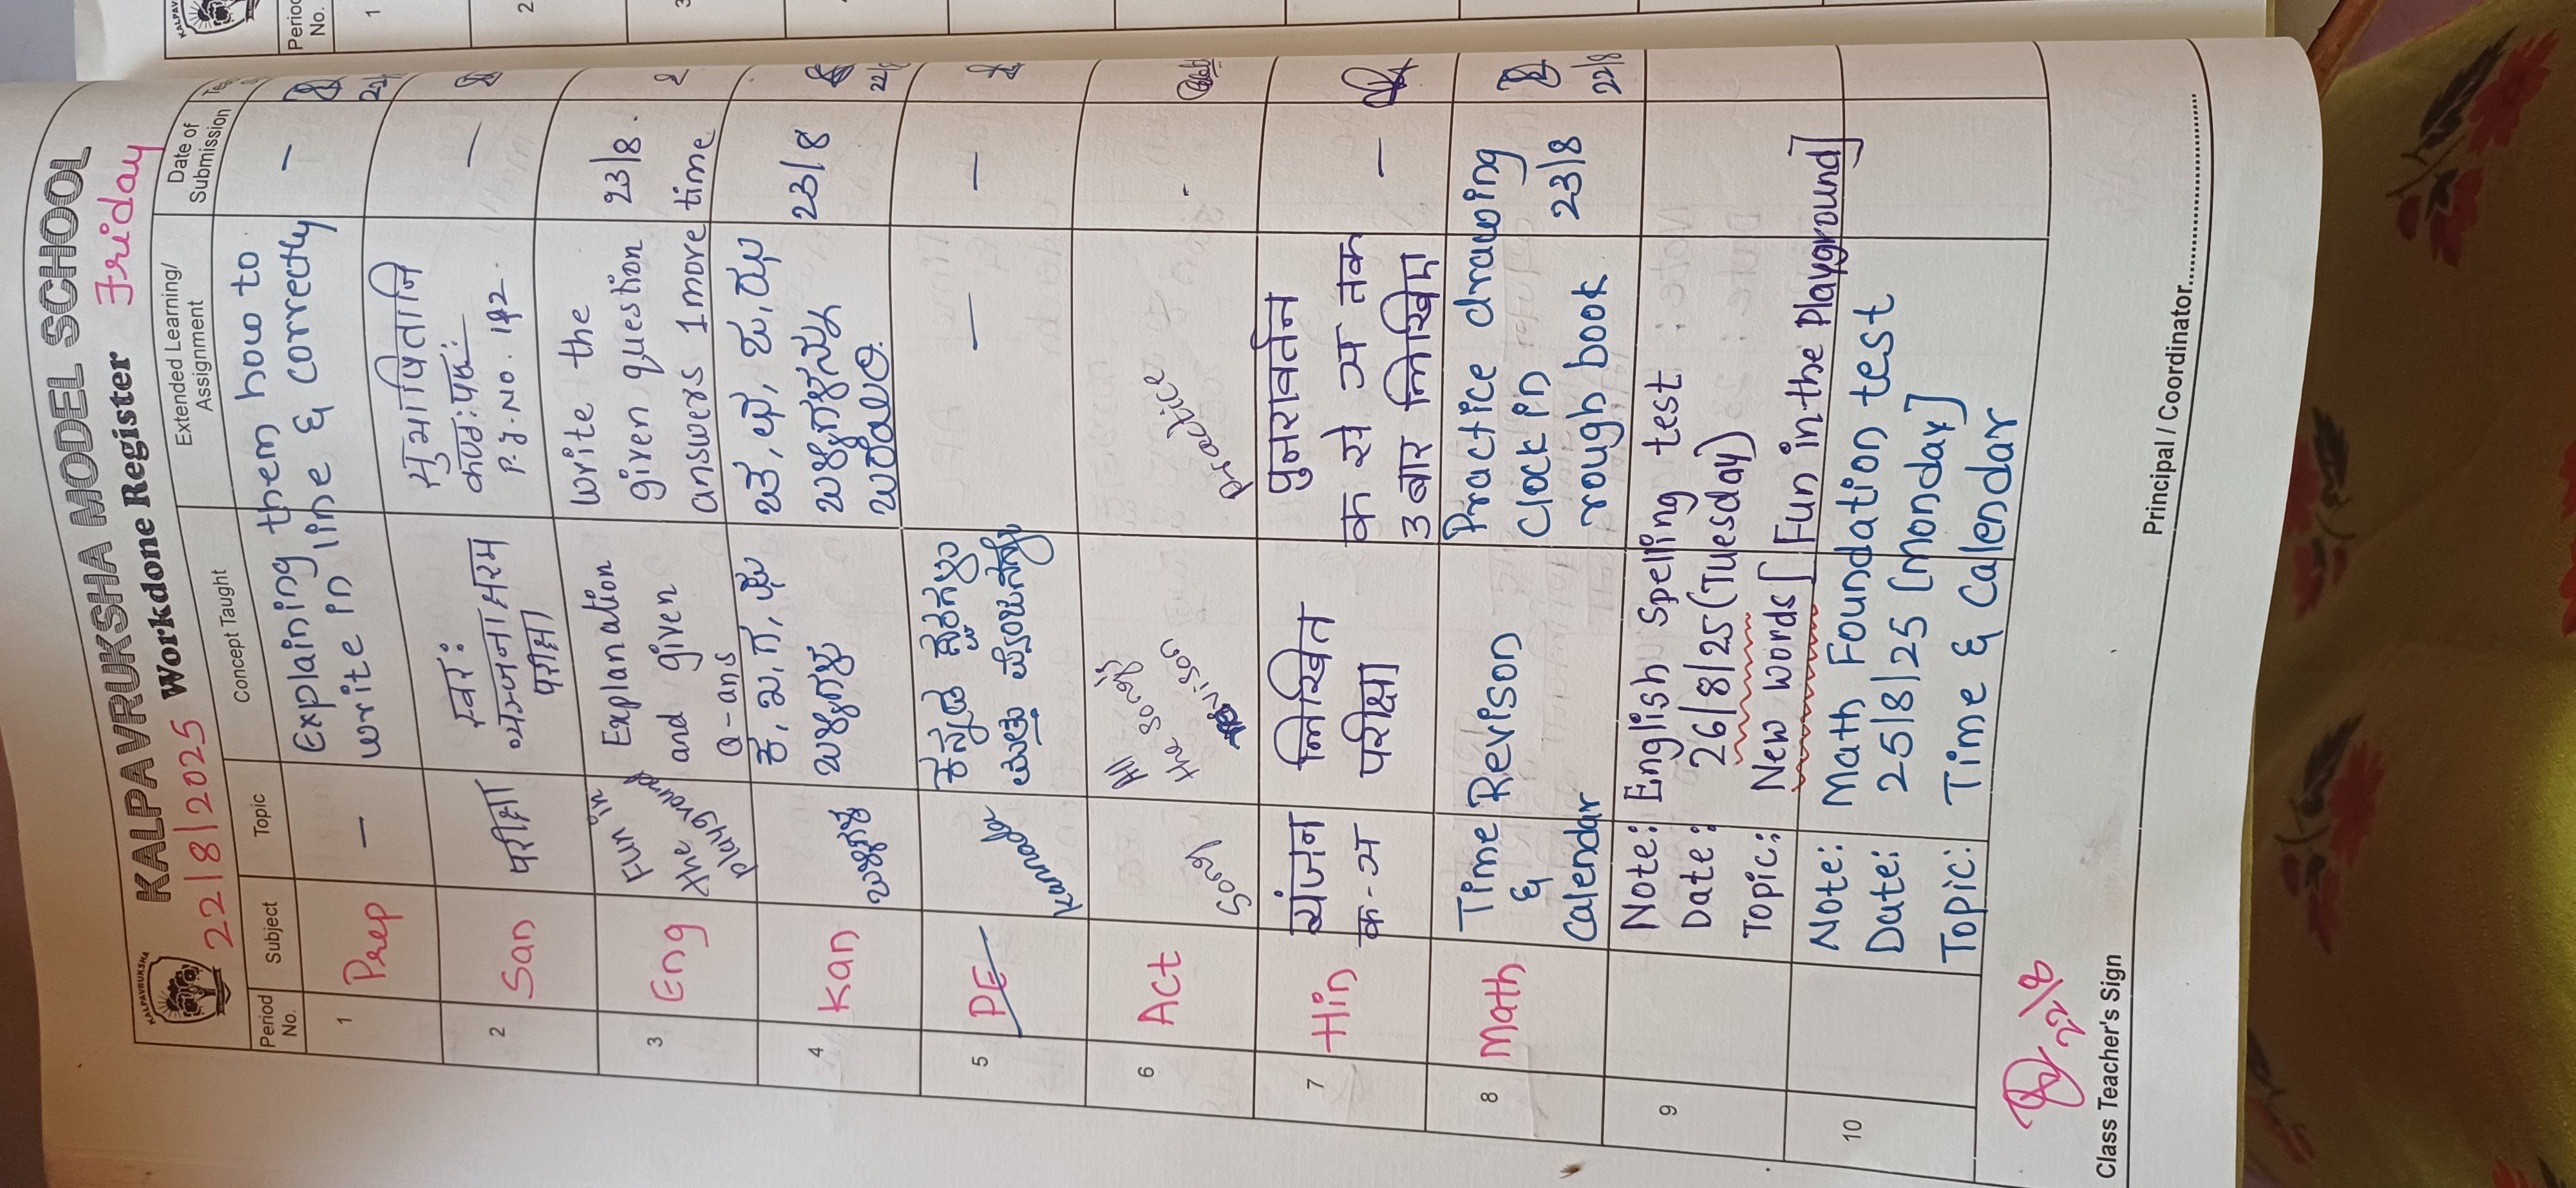 KALPAVRUKSHA
KALPAVRUKSHA MODEL SCHOOL
22/8/2025 Workdone Register Friday
Period No. Subject Topic Concept Taught Extended Learning/ Assignment Date of Submission
1 Prep — Explaining them how to
write in line & correctly —
2 San परीक्षा स्वरः
व्यञ्जनाक्षरम
परीक्षा
सुभाषितानि
P.g. No. 142.
—
3 Eng Fun in
the
playground
Explanation
and given
Q-ans
write the
given question
answers 1 more time
23/8.
4 Kan ಬಳ್ಳಿಗಳು
ಬಳ್ಳಿಗಳು
23/8
22/8
5 PE Kannada
ಕನ್ನಡ
ಮತ್ತು
— —
6 Act Song
All songs
the
revison
practice
7 Hin व्यंजन
क-ञ
लिखित
परीक्षा
पुनरावर्तन
क से ञ तक
3 बार लिखिए
—
8 Math Time
&
Calendar
Revison
Practice drawing
Clock in
rough book
23/8
22/8
9 Note: English Spelling test
Date: 26/8/25 (Tuesday)
Topic: New words [Fun in the Playground]
10 Note: Math Foundation test
Date: 25/8/25 [Monday]
Topic: Time & Calendar
22/8
Class Teacher's Sign Principal / Coordinator
Period No.
1
2
3